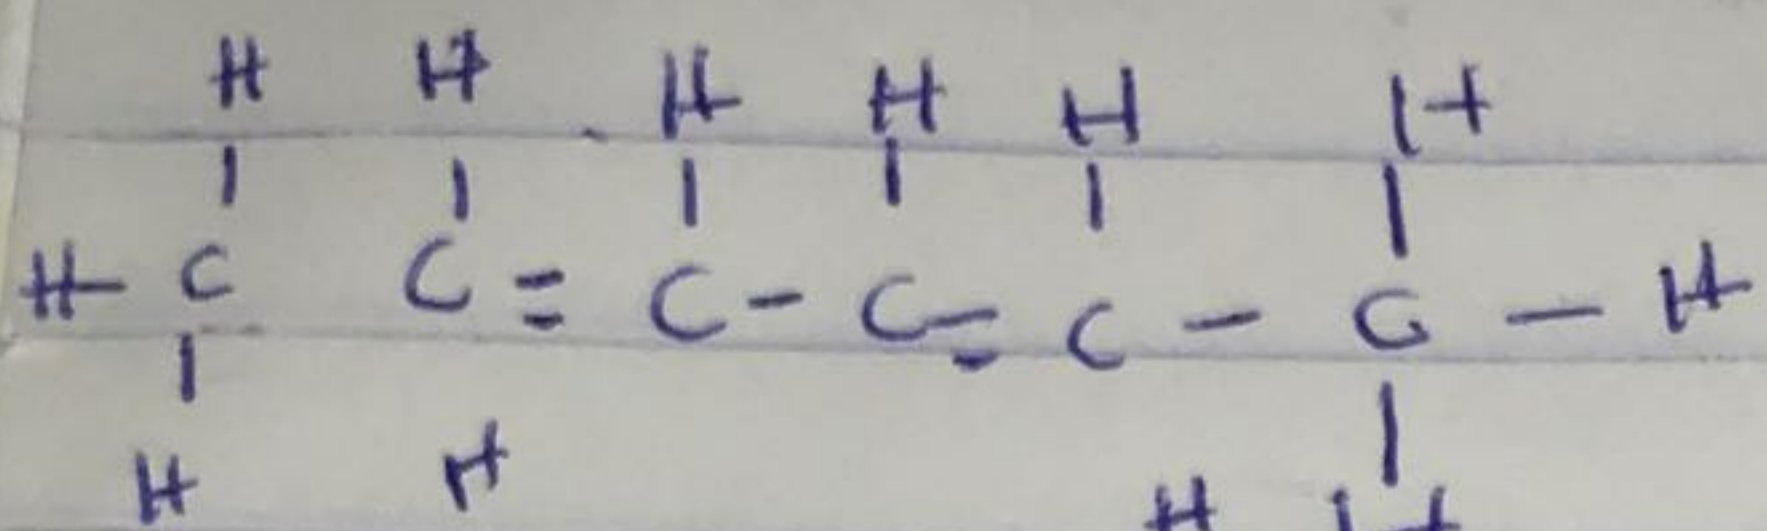 H H H H H H
| | | | | |
H- C C = C - C = C - C - H
| |
H H H H